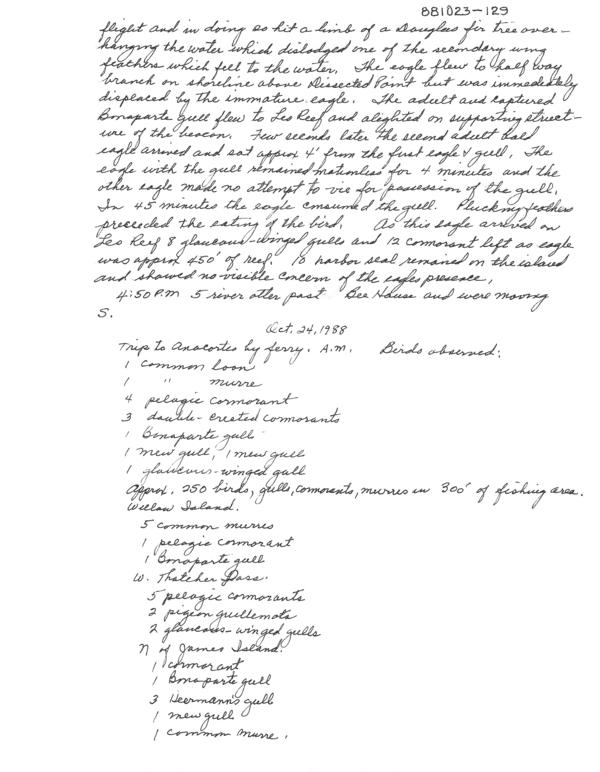 881023-129
flight and in doing so hit a limb of a Douglas fir tree over-
hanging the water which dislodged one of the secondary wing
feathers which fell to the water. The eagle flew to half way
branch on shoreline above Dissected Point but was immediately
displaced by the immature eagle. The adult and captured
Bonaparte gull flew to Leo Reef and alighted on supporting struct-
ure of the beacon. Few seconds later the second adult bald
eagle arrived and sat approx 4' from the first eagle & gull. The
eagle with the gull remained motionless for 4 minutes and the
other eagle made no attempt to vie for possession of the gull.
In 45 minutes the eagle consumed the gull. Plucking feathers
preceeded the eating of the bird. As this eagle arrived on
Leo Reef 8 glaucous-winged gulls and 12 cormorant left as eagle
was approx 450' of reef. 10 harbor seal remained on the island
and showed no visible concern of the eagles presence.
4:50 P.M 5 river otter past Bee House and were moving
S.
Oct. 24, 1988
Trip to Anacortes by ferry. A.M. Birds observed:
1 common loon
1 " murre
4 pelagic cormorant
3 double-crested cormorants
1 Bonaparte gull
1 mew gull, 1 mew gull
1 glaucous-winged gull
Approx. 250 birds, gulls, cormorants, murres in 300' of fishing area.
Willow Island.
5 common murres
1 pelagic cormorant
1 Bonaparte gull
W. Thatcher Pass.
5 pelagic cormorants
2 pigeon guillemots
2 glaucous-winged gulls
N of James Island.
1 cormorant
1 Bonaparte gull
3 Heermann's gull
1 mew gull
1 common murre.